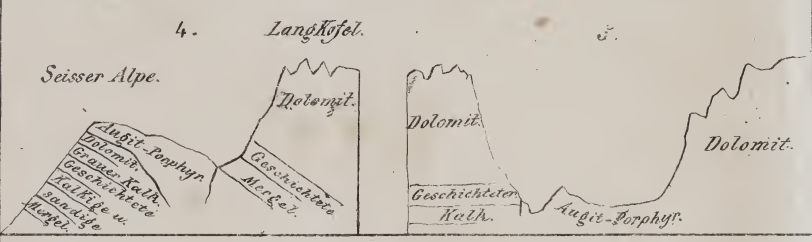 4.
LangKofel.
Seisser Alpe.
Dolomit.
Augit-Porphyr.
Dolomit.
Grauer Kalk.
Geschichtete
Kalkige u.
sandige
Mergel.
Geschichtete
Mergel.
5.
Dolomit.
Geschichteter
Kalk.
Augit-Porphyr.
Dolomit.